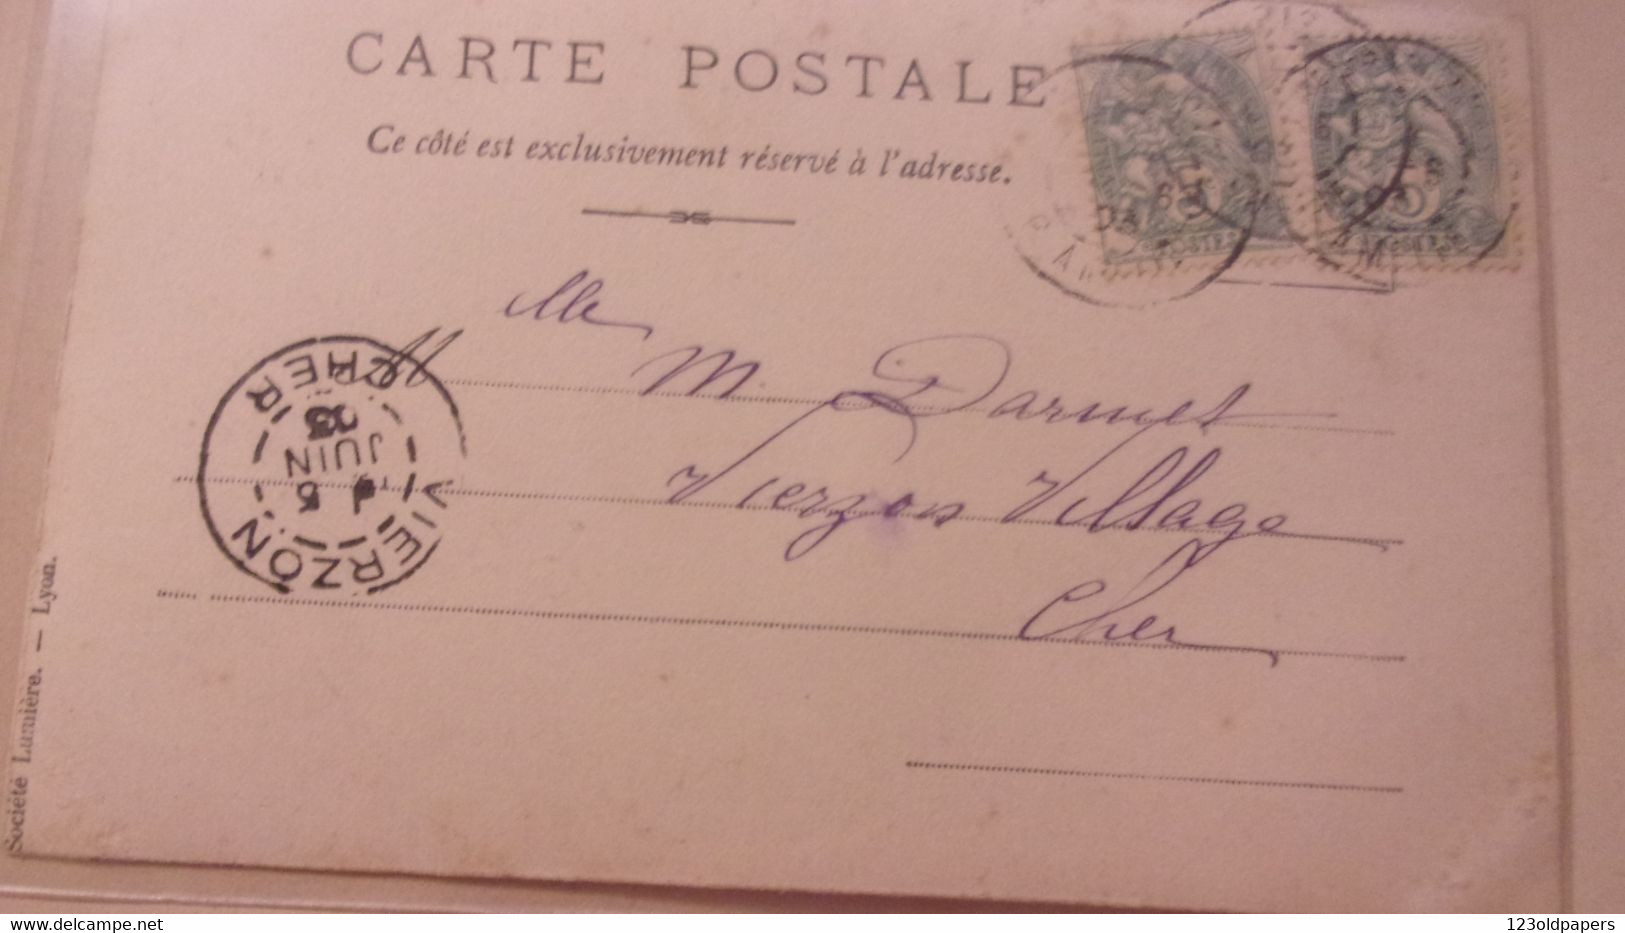 CARTE POSTALE
Ce côté est exclusivement réservé à l'adresse.
Mlle
M. Darmet
Vierzon Village
Cher
VIERZON
CHER
5
JUIN
03
POSTES
POSTES
Société Lumière. — Lyon.
www.delcampe.net
123oldpapers